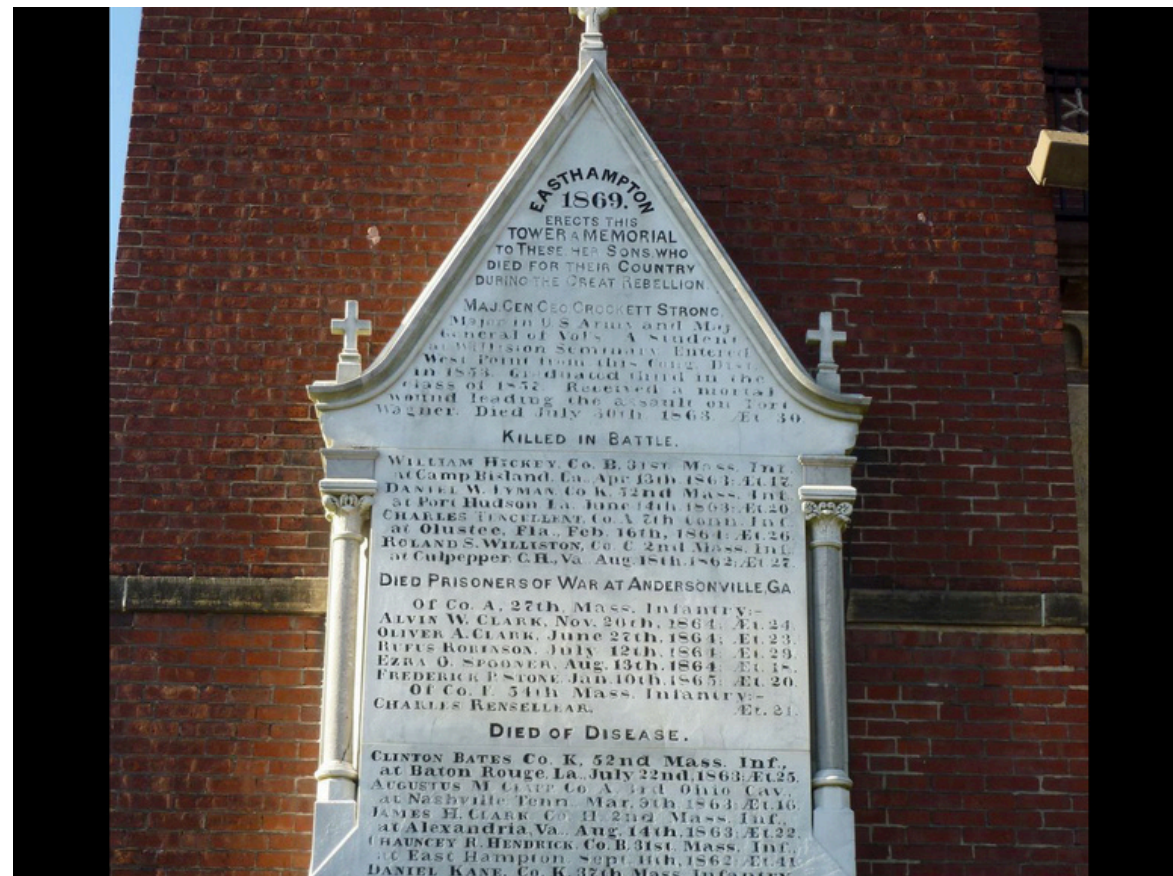 EASTHAMPTON
1869.
ERECTS THIS
TOWER A MEMORIAL
TO THESE HER SONS, WHO
DIED FOR THEIR COUNTRY
DURING THE GREAT REBELLION
MAJ. GEN GEO. CROCKETT STRONG
Major in U S Army and Maj.
General of Vols. A student
at Williston Seminary. Entered
West Point from this Cong. Dist.
in 1853. Graduated third in the
class of 1857. Received a mortal
wound leading the assault on Fort
Wagner. Died July 30th 1863. Æt. 30.
KILLED IN BATTLE.
WILLIAM HICKEY, Co. B, 31st Mass. Inf.
at Camp Bisland, La., Apr 13th, 1863; Æt. 17.
DANIEL W. LYMAN, Co K, 52nd Mass. Inf.
at Port Hudson La. June 14th, 1863; Æt. 20
CHARLES Co. A 7th Conn. Inf.
at Olustee, Fla., Feb. 16th, 1864; Æt. 26.
ROLAND S. WILLISTON, Co. C 2nd Mass. Inf.
at Culpepper C.H., Va. Aug. 18th, 1862; Æt. 27.
DIED PRISONERS OF WAR AT ANDERSONVILLE, GA.
Of Co. A, 27th, Mass. Infantry:-
ALVIN W. CLARK, Nov. 26th, 1864; Æt. 24.
OLIVER A. CLARK, June 27th, 1864; Æt. 23.
RUFUS ROBINSON, July 12th, 1864; Æt. 29.
EZRA O. SPOONER, Aug. 13th, 1864; Æt. 18.
FREDERICK P. STONE, Jan. 10th, 1865; Æt. 20.
Of Co. F. 54th Mass. Infantry:-
CHARLES RENSELLEAR, Æt. 21.
DIED OF DISEASE.
CLINTON BATES Co. K, 52nd Mass. Inf.,
at Baton Rouge, La., July 22nd, 1863; Æt. 25.
AUGUSTUS M. CLAPP Co A, 3rd Ohio Cav.,
at Nashville Tenn. Mar. 9th, 1863; Æt. 16.
JAMES H. CLARK, Co. H, 2nd Mass. Inf.,
at Alexandria, Va., Aug. 14th, 1863; Æt. 22.
CHAUNCEY R. HENDRICK, Co. B, 31st. Mass. Inf.,
at East Hampton, Sept. 11th, 1862; Æt. 41.
DANIEL KANE, Co. K, 37th Mass. Infantry